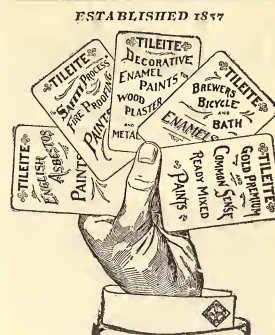 ESTABLISHED 1857
TILEITE
ENGLISH
ASBESTOS
PAINTS
TILEITE
SMITH PROCESS
FIRE PROOFING
PAINTS
TILEITE
DECORATIVE
ENAMEL
PAINTS FOR
WOOD
PLASTER
AND
METAL
TILEITE
BREWERS
BICYCLE
AND
BATH
ENAMEL
TILEITE
GOLD PREMIUM
AND
COMMON SENSE
READY MIXED
PAINTS